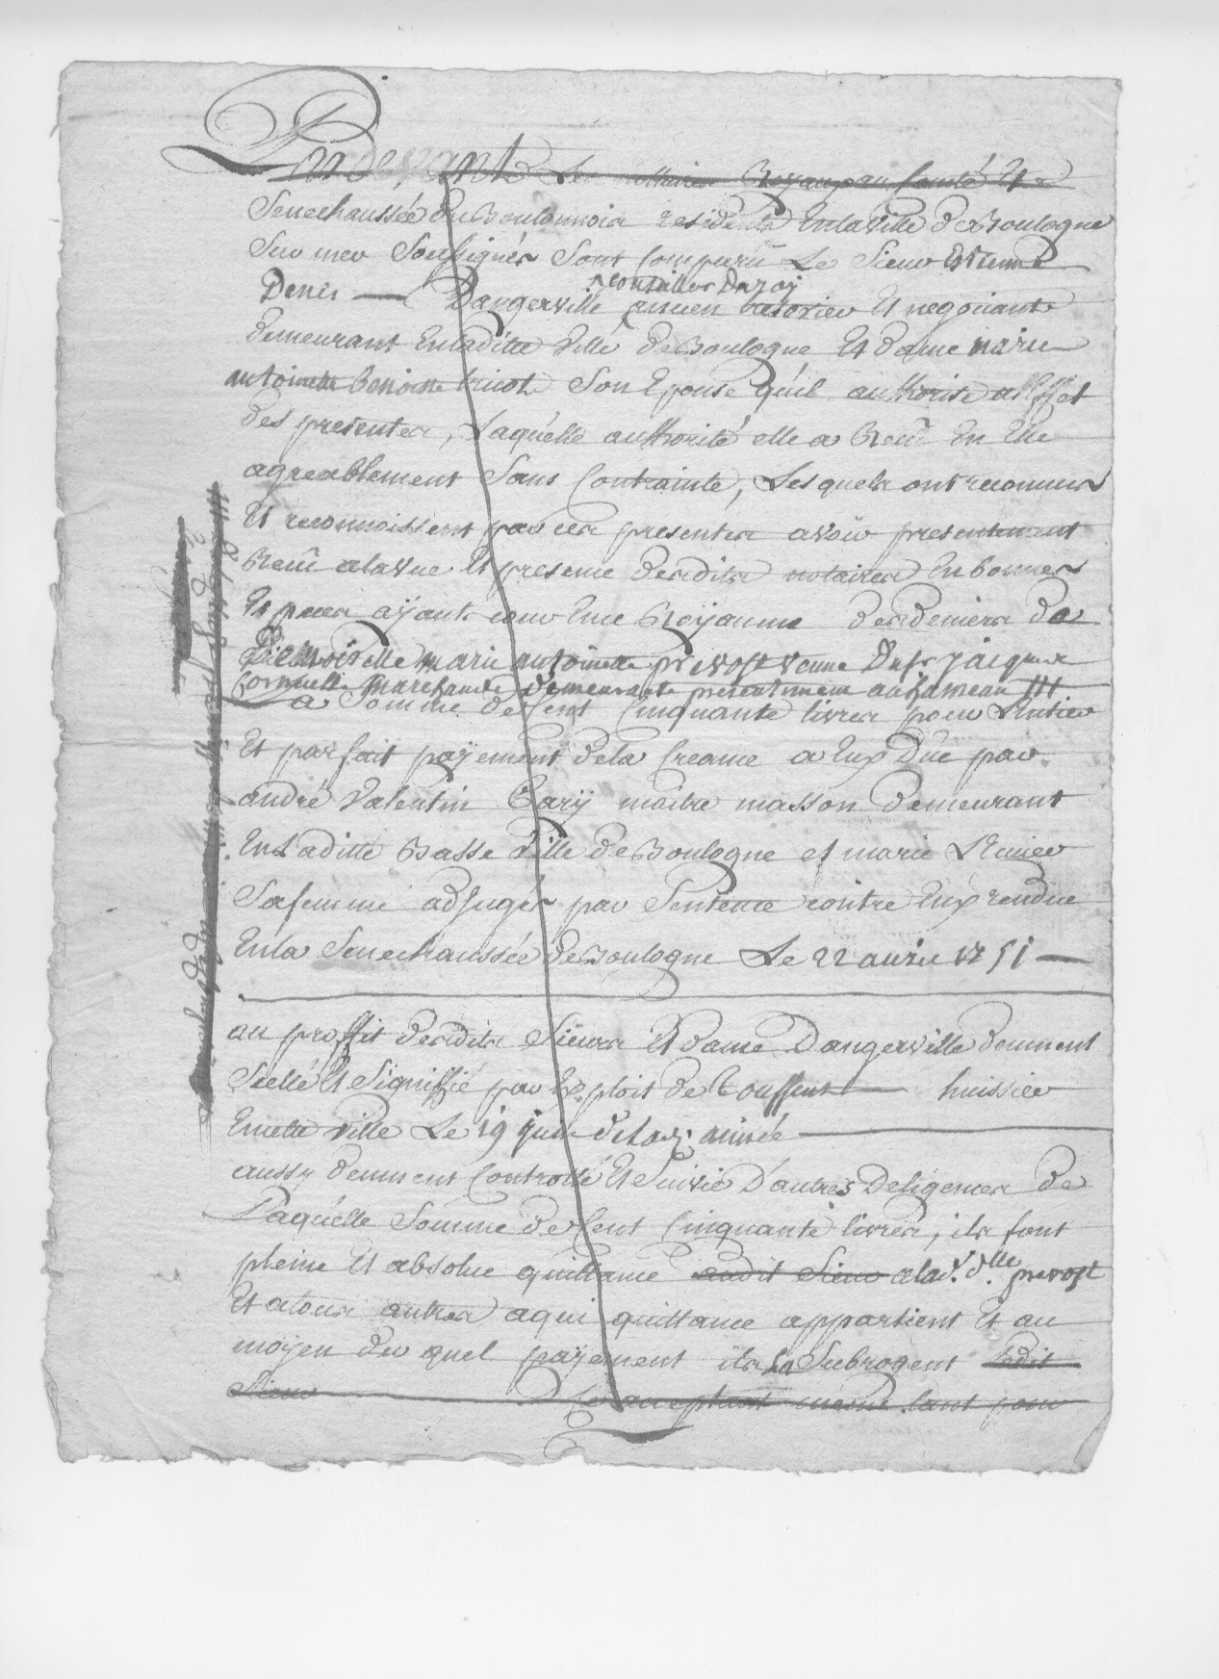 Pardevant Les nottaires Royaux au Comté Et
Senechaussée du Boulonnois residents En la Ville de Boulogne
Sur mer Soussignés Sont Comparu Le Sieur Estienne
Denis Dangerville conseiller du roy ancien tresorier Et negotiant
demeurant En ladite Ville de Boulogne Et dame marie
antoinette benoitte tricot Son Epouse qu'il authorise a l'effet
des presentes, Laquelle authorité elle a Receu En Elle
agreablement Sans Contrainte, Lesquels ont reconnus
Et reconnoissent par ces presentes avoir presentement
Receu a la Vue Et presence desdits notaires En bonnes
Especes ayants cours En ce Royaume des deniers de
Demoiselle marie antoinette prevost Veuve du Sr. jacques
Cornuelle marchande demeurante presentement au hameau
La Somme de Cent Cinquante livres pour L'Entier
Et parfait payement de la Creance a Eux Due par
andré Valentin Bary maitre masson demeurant
En Laditte Basse Ville de Boulogne et marie
Sa femme adjugés par Sentence contre Eux rendue
En la Senechaussée de Boulogne Le 22 avril 1751
au proffit desdits Sieurs Et dame Dangerville deument
Scellé Et Signiffié par Exploit de Toussent huissier
En cette Ville Le 19 juin de lad. année
aussy deument Controllé Et Suivie d'autres Deligences de
Laquelle Somme de Cent Cinquante livres, ils font
pleine Et absolue quittance audit Sieur a lad. dlle. prevost
Et a tous autres a qui quittance appartient Et au
moyen du quel payement ils la Subrogent ledit
Sieur Ce acceptant meme tant pour